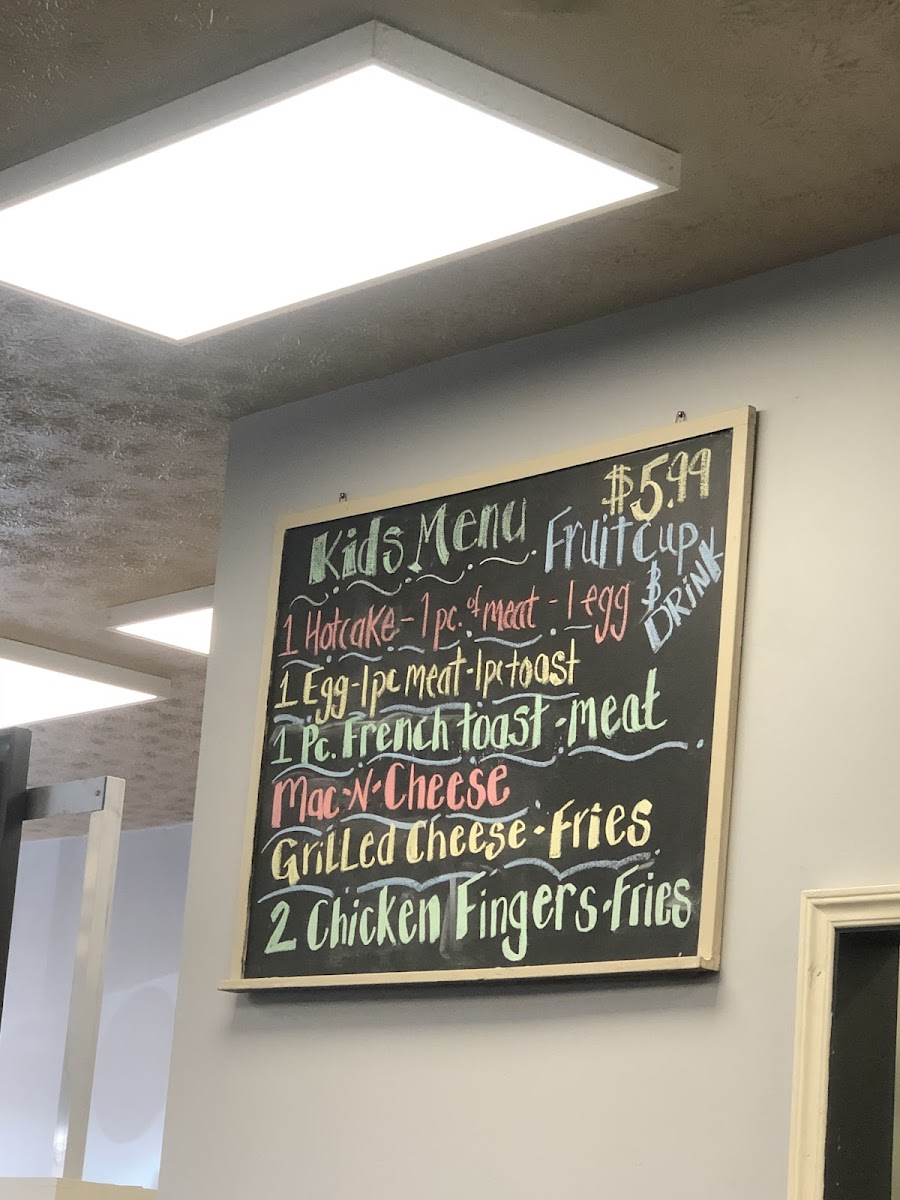 Kids Menu
$5.99
Fruit Cup
&
DRINK
1 Hotcake - 1 pc. of meat - 1 egg
1 Egg - 1 pc meat - 1 pc toast
1 Pc. French toast - meat
Mac-N-Cheese
Grilled Cheese - Fries
2 Chicken Fingers - Fries